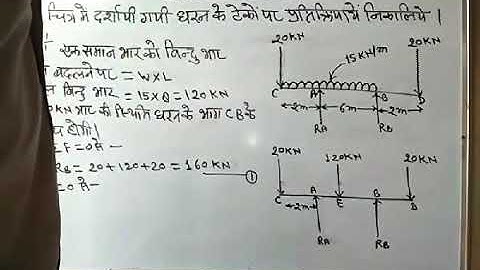 चित्र में दर्शायी गयी धरन के टेकों पर प्रतिक्रियायें निकालिये।
एक समान भार को बिन्दु भार
बदलने पर = W×L
बिन्दु भार = 15×8 = 120 KN
KN भार की स्थिति धरन के भाग CB के
होगी।
F=0 से-
RB = 20+120+20 = 160 KN ①
=0 से-
20KN 20KN
15KN/m
C A B D
2m 6m 2m
RA RB
20KN 120KN 20KN
C A E B D
2m
RA RB